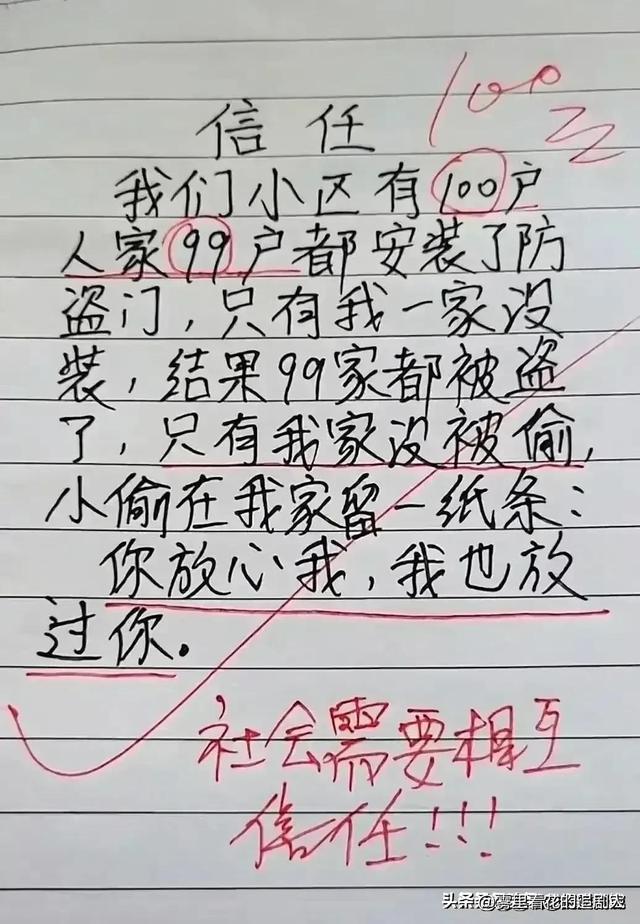 100
信任
我们小区有100户
人家99户都安装了防
盗门,只有我一家没
装,结果99家都被盗
了,只有我家没被偷,
小偷在我家留一纸条:
你放心我,我也放
过你。
社会需要相互
信任!!!
头条@雾里看花的追剧人